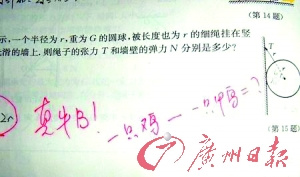 (第 14 题)
示,一个半径为 r,重为 G 的圆球,被长度也为 r 的细绳挂在竖
光滑的墙上,则绳子的张力 T 和墙壁的弹力 N 分别是多少?
T
2r
真牛B!
一只鸡一一只
=?
(第 15 题)
廣州日報